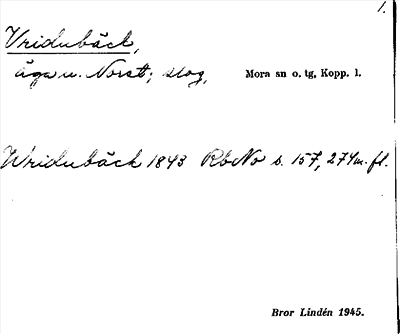 1.
Vridubäck,
äga u. Norst; skog,
Mora sn o. tg, Kopp. l.
Wridubäck 1843 RbNo s. 157, 274 m. fl.
Bror Lindén 1945.